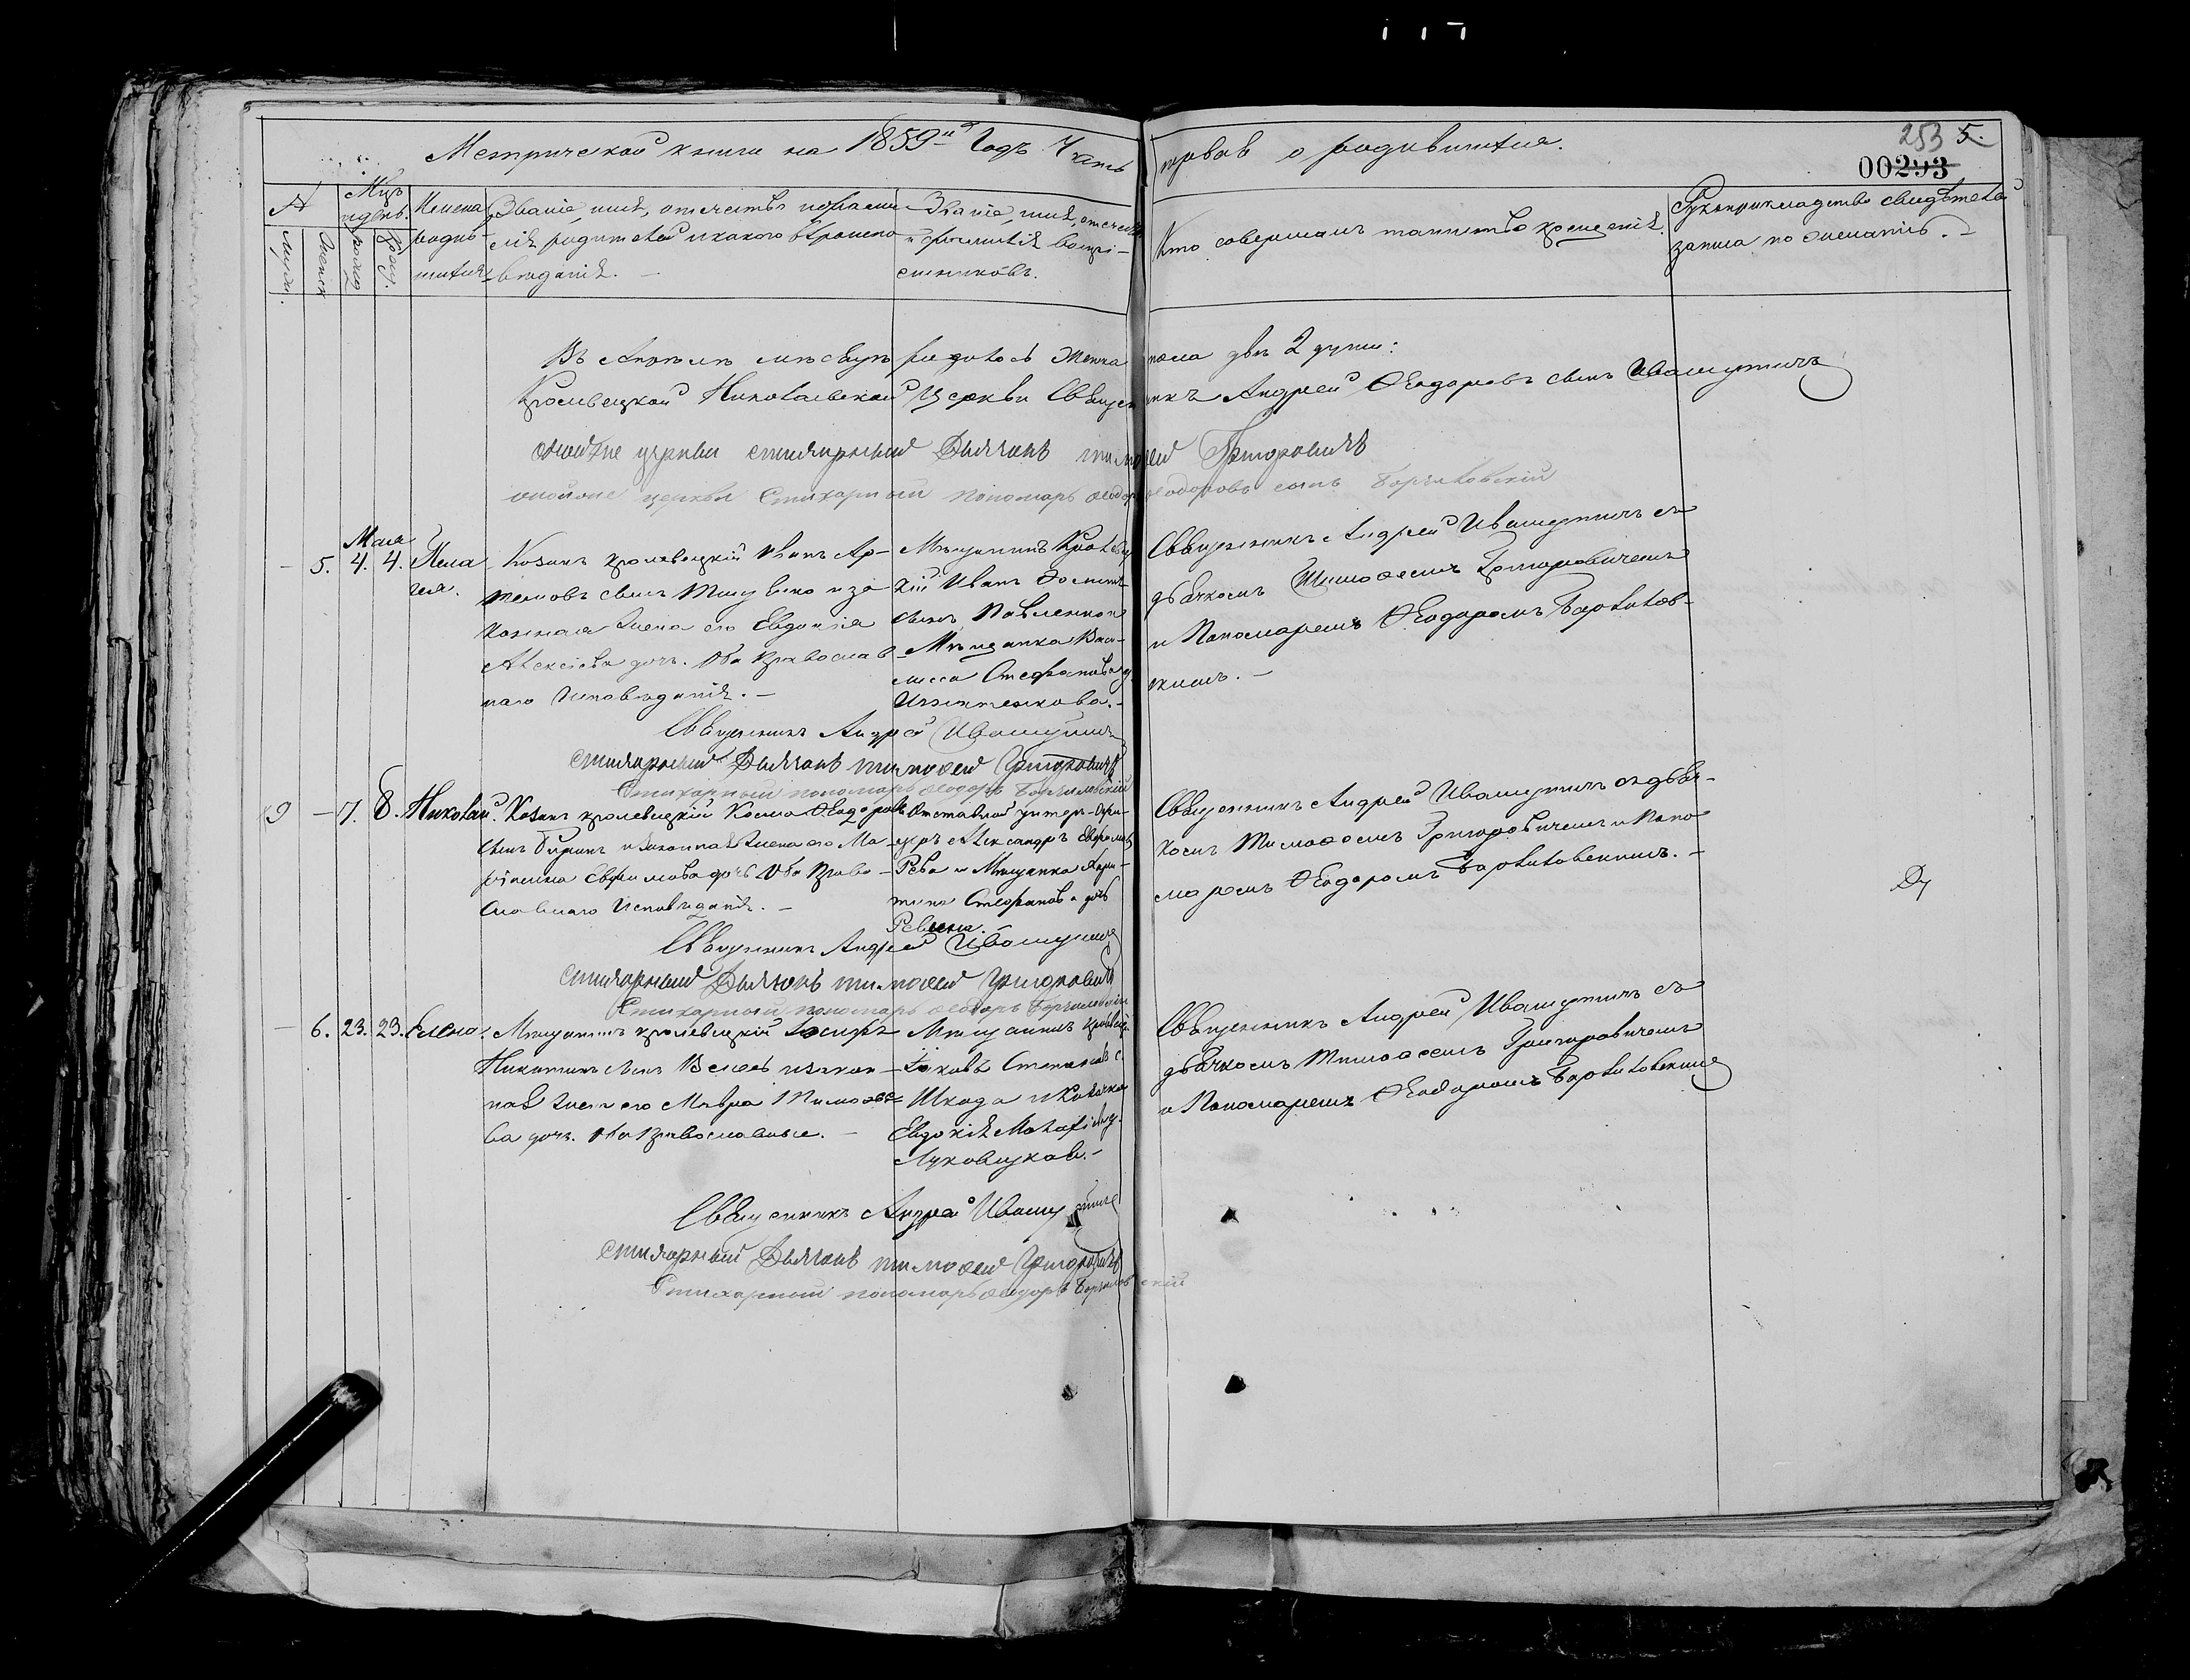 Метрической книги на 1859й Годъ Часть первая о родившихся.
253 5.
00293
Мцъ
и день.
Имена
родив-
шихся
Званіе, имя, отечество и фами-
лія родителей и какого вѣроиспо-
вѣданія.
Званіе, имя, отечество
и фамилія воспрі-
емниковъ.
Кто совершалъ таинство крещенія.
Рукоприкладство свидѣтелей
записи по желанію.
Мужск.
Женск.
рожд.
крещ.
Въ Апрѣлѣ мѣсяцѣ родилось женска пола двѣ 2 души:
Кролевецкой Николаевской Церкви Священникъ Андрей Ѳеодоровъ сынъ Ивашутичъ
оной же церкви стихарный Дьячокъ тимоѳей Григоровичъ
оной же церкви Стихарный пономарь Ѳеодоръ Ѳеодоровъ сынъ
Мая
5. 4. 4.
Пела
гея.
Козакъ кролевецкій Иванъ Ар-
темовъ сынъ и за-
конная жена его Евдокія
Алексѣева доч. Оба православ
наго Исповѣданія. –
Мѣщанинъ Кролевец
кій Иванъ
сынъ Павленко и
Мѣщанка Васи-
лисса Стефанова д.
Священникъ Андрей Ивашутичъ съ
дьячкомъ Тимоѳеемъ Григоровичемъ
и Пономаремъ Ѳеодоромъ
скимъ. –
Священникъ Андрей Ивашутичъ
стихарный Дьячокъ тимоѳей Григоровичъ
Стихарный пономарь Ѳеодоръ
9 – 7. 8. Николай.
Козакъ кролевецкій Косма Ѳеодоровъ
сынъ и законная жена его Ма-
Евфимова дочь Оба Право-
славнаго Исповѣданія. –
Отставной унтеръ-офи-
церъ Александръ Ефремовъ
Рева и Мѣщанка
Стефанова дочь
Ревина.
Священникъ Андрей Ивашутичъ съ дьяч-
комъ Тимоѳеемъ Григоровичемъ и Поно-
маремъ Ѳеодоромъ
Священникъ Андрей Ивашутичъ
стихарный Дьячокъ тимоѳей Григоровичъ
Стихарный пономарь Ѳеодоръ
– 6. 23. 23. Елена.
Мѣщанинъ кролевецкій Іосифъ
Никитинъ сынъ и закон-
ная жена его Мавра Тимоѳее-
ва доч. Оба Православные. –
Мѣщанинъ Кролевецк.
Іаковъ Степановъ с.
Шкода и Козачка
Евдокія
Священникъ Андрей Ивашутичъ съ
дьячкомъ Тимоѳеемъ Григоровичемъ
и Пономаремъ Ѳеодоромъ
Священникъ Андрей Ивашутичъ
стихарный Дьячокъ тимоѳей Григоровичъ
Стихарный пономарь Ѳеодоръ